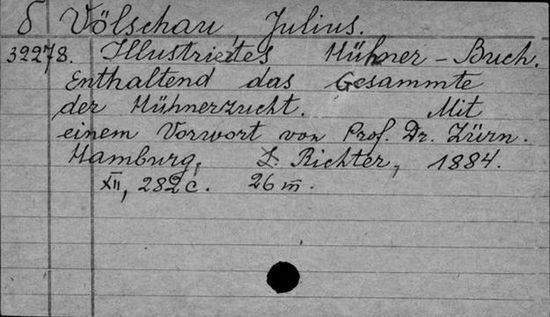 δ Völschau Julius.
32278. Illustriertes Hühner-Buch.
Enthaltend das Gesammte
der Hühnerzucht. Mit
einem Vorwort von Prof. Dr. Zürn.
Hamburg, J. Richter, 1884.
XII, 282 c. 26 m.